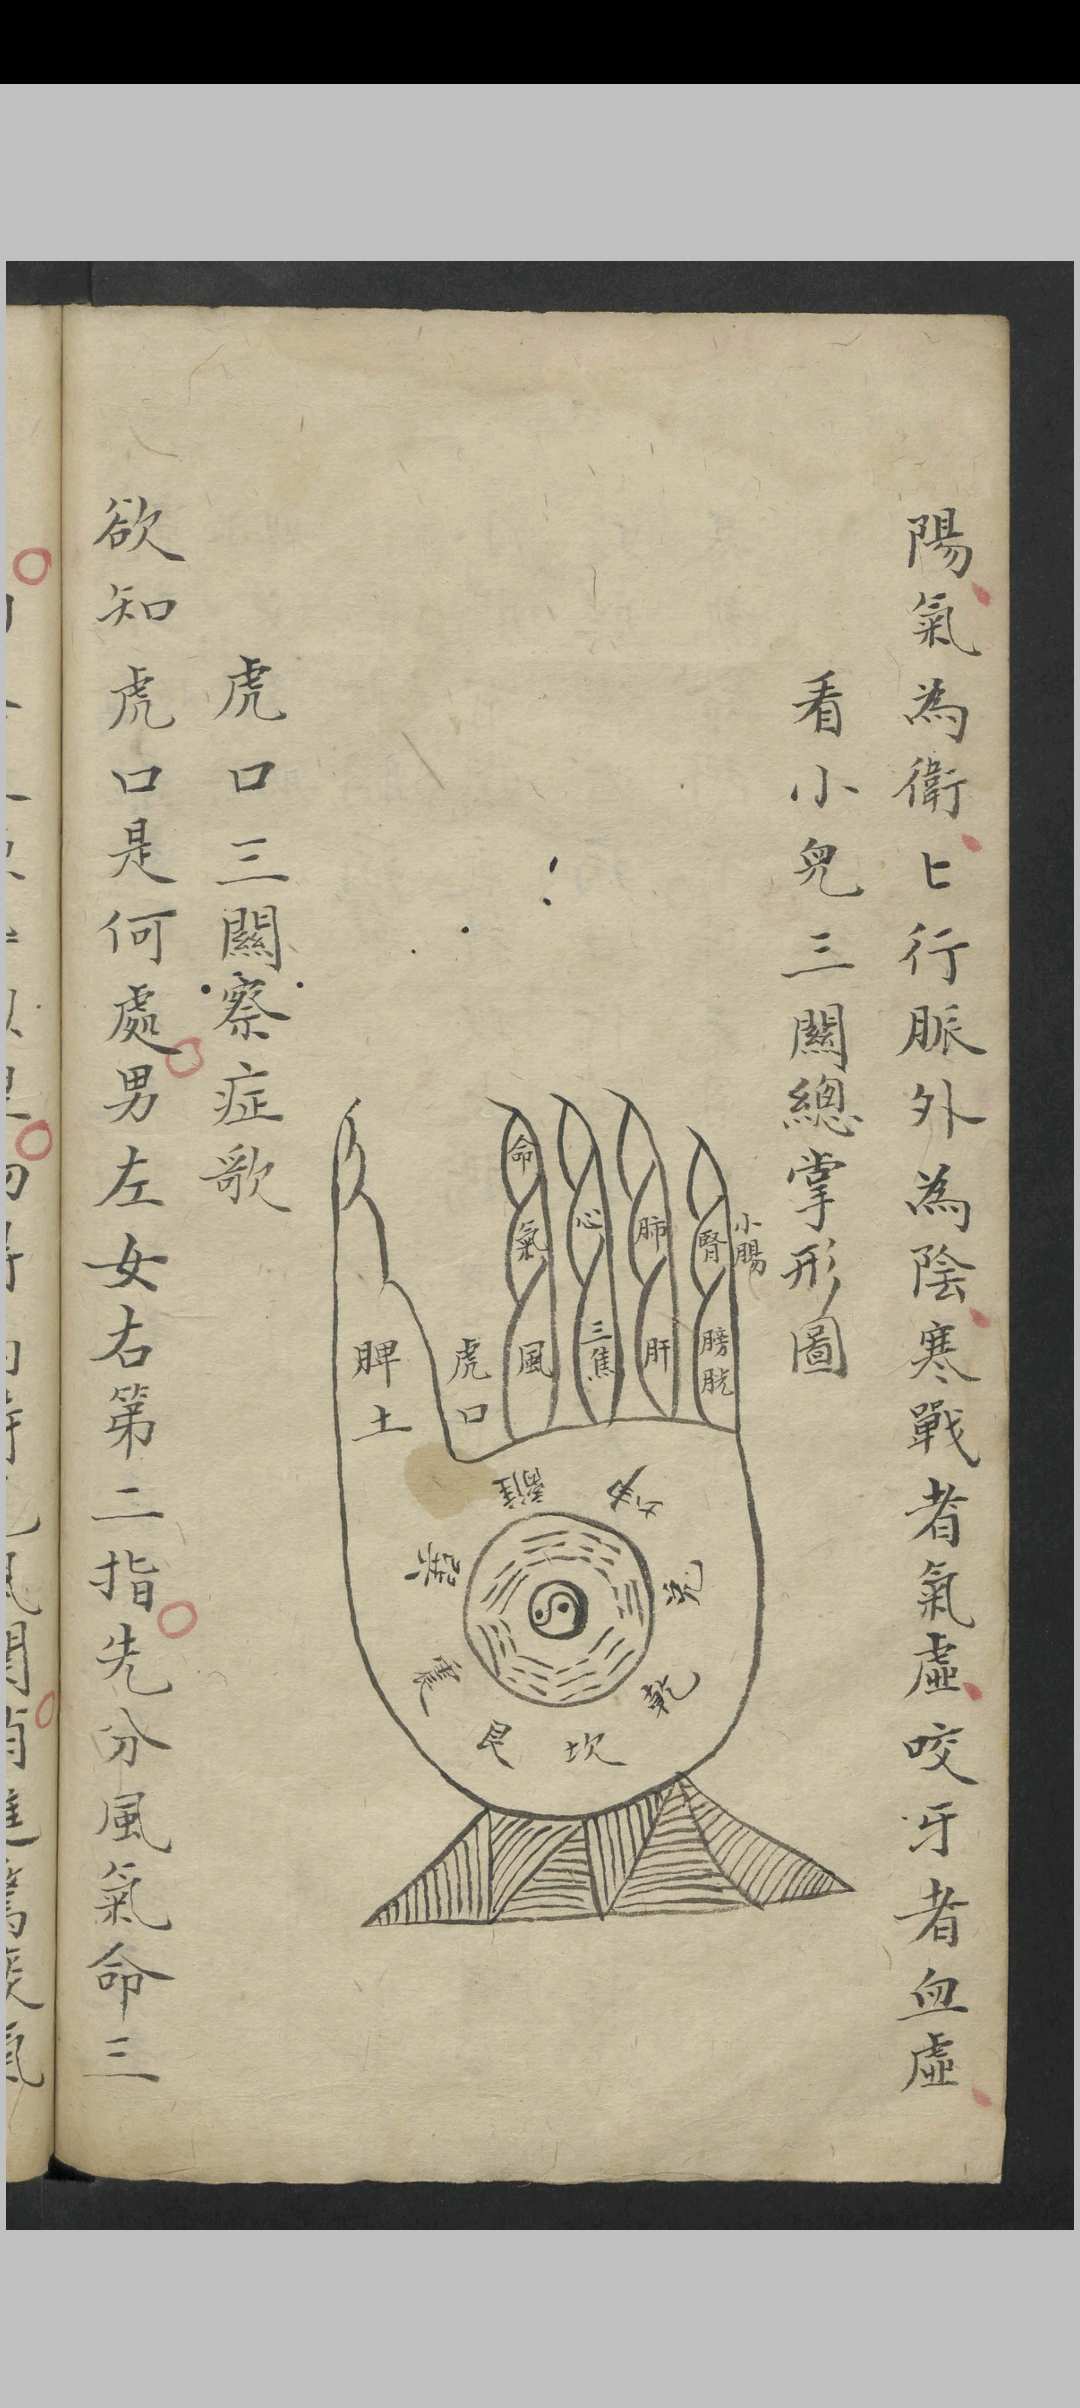 陽氣為衛〻行脈外為陰寒戰者氣虛咬牙者血虛
看小兒三關總掌形圖
小腸
腎
膀胱
肺
肝
心
三焦
命
氣
風
虎口
脾土
離
坤
兌
乾
坎
艮
震
巽
虎口三關察症歌
欲知虎口是何處男左女右第二指先分風氣命三